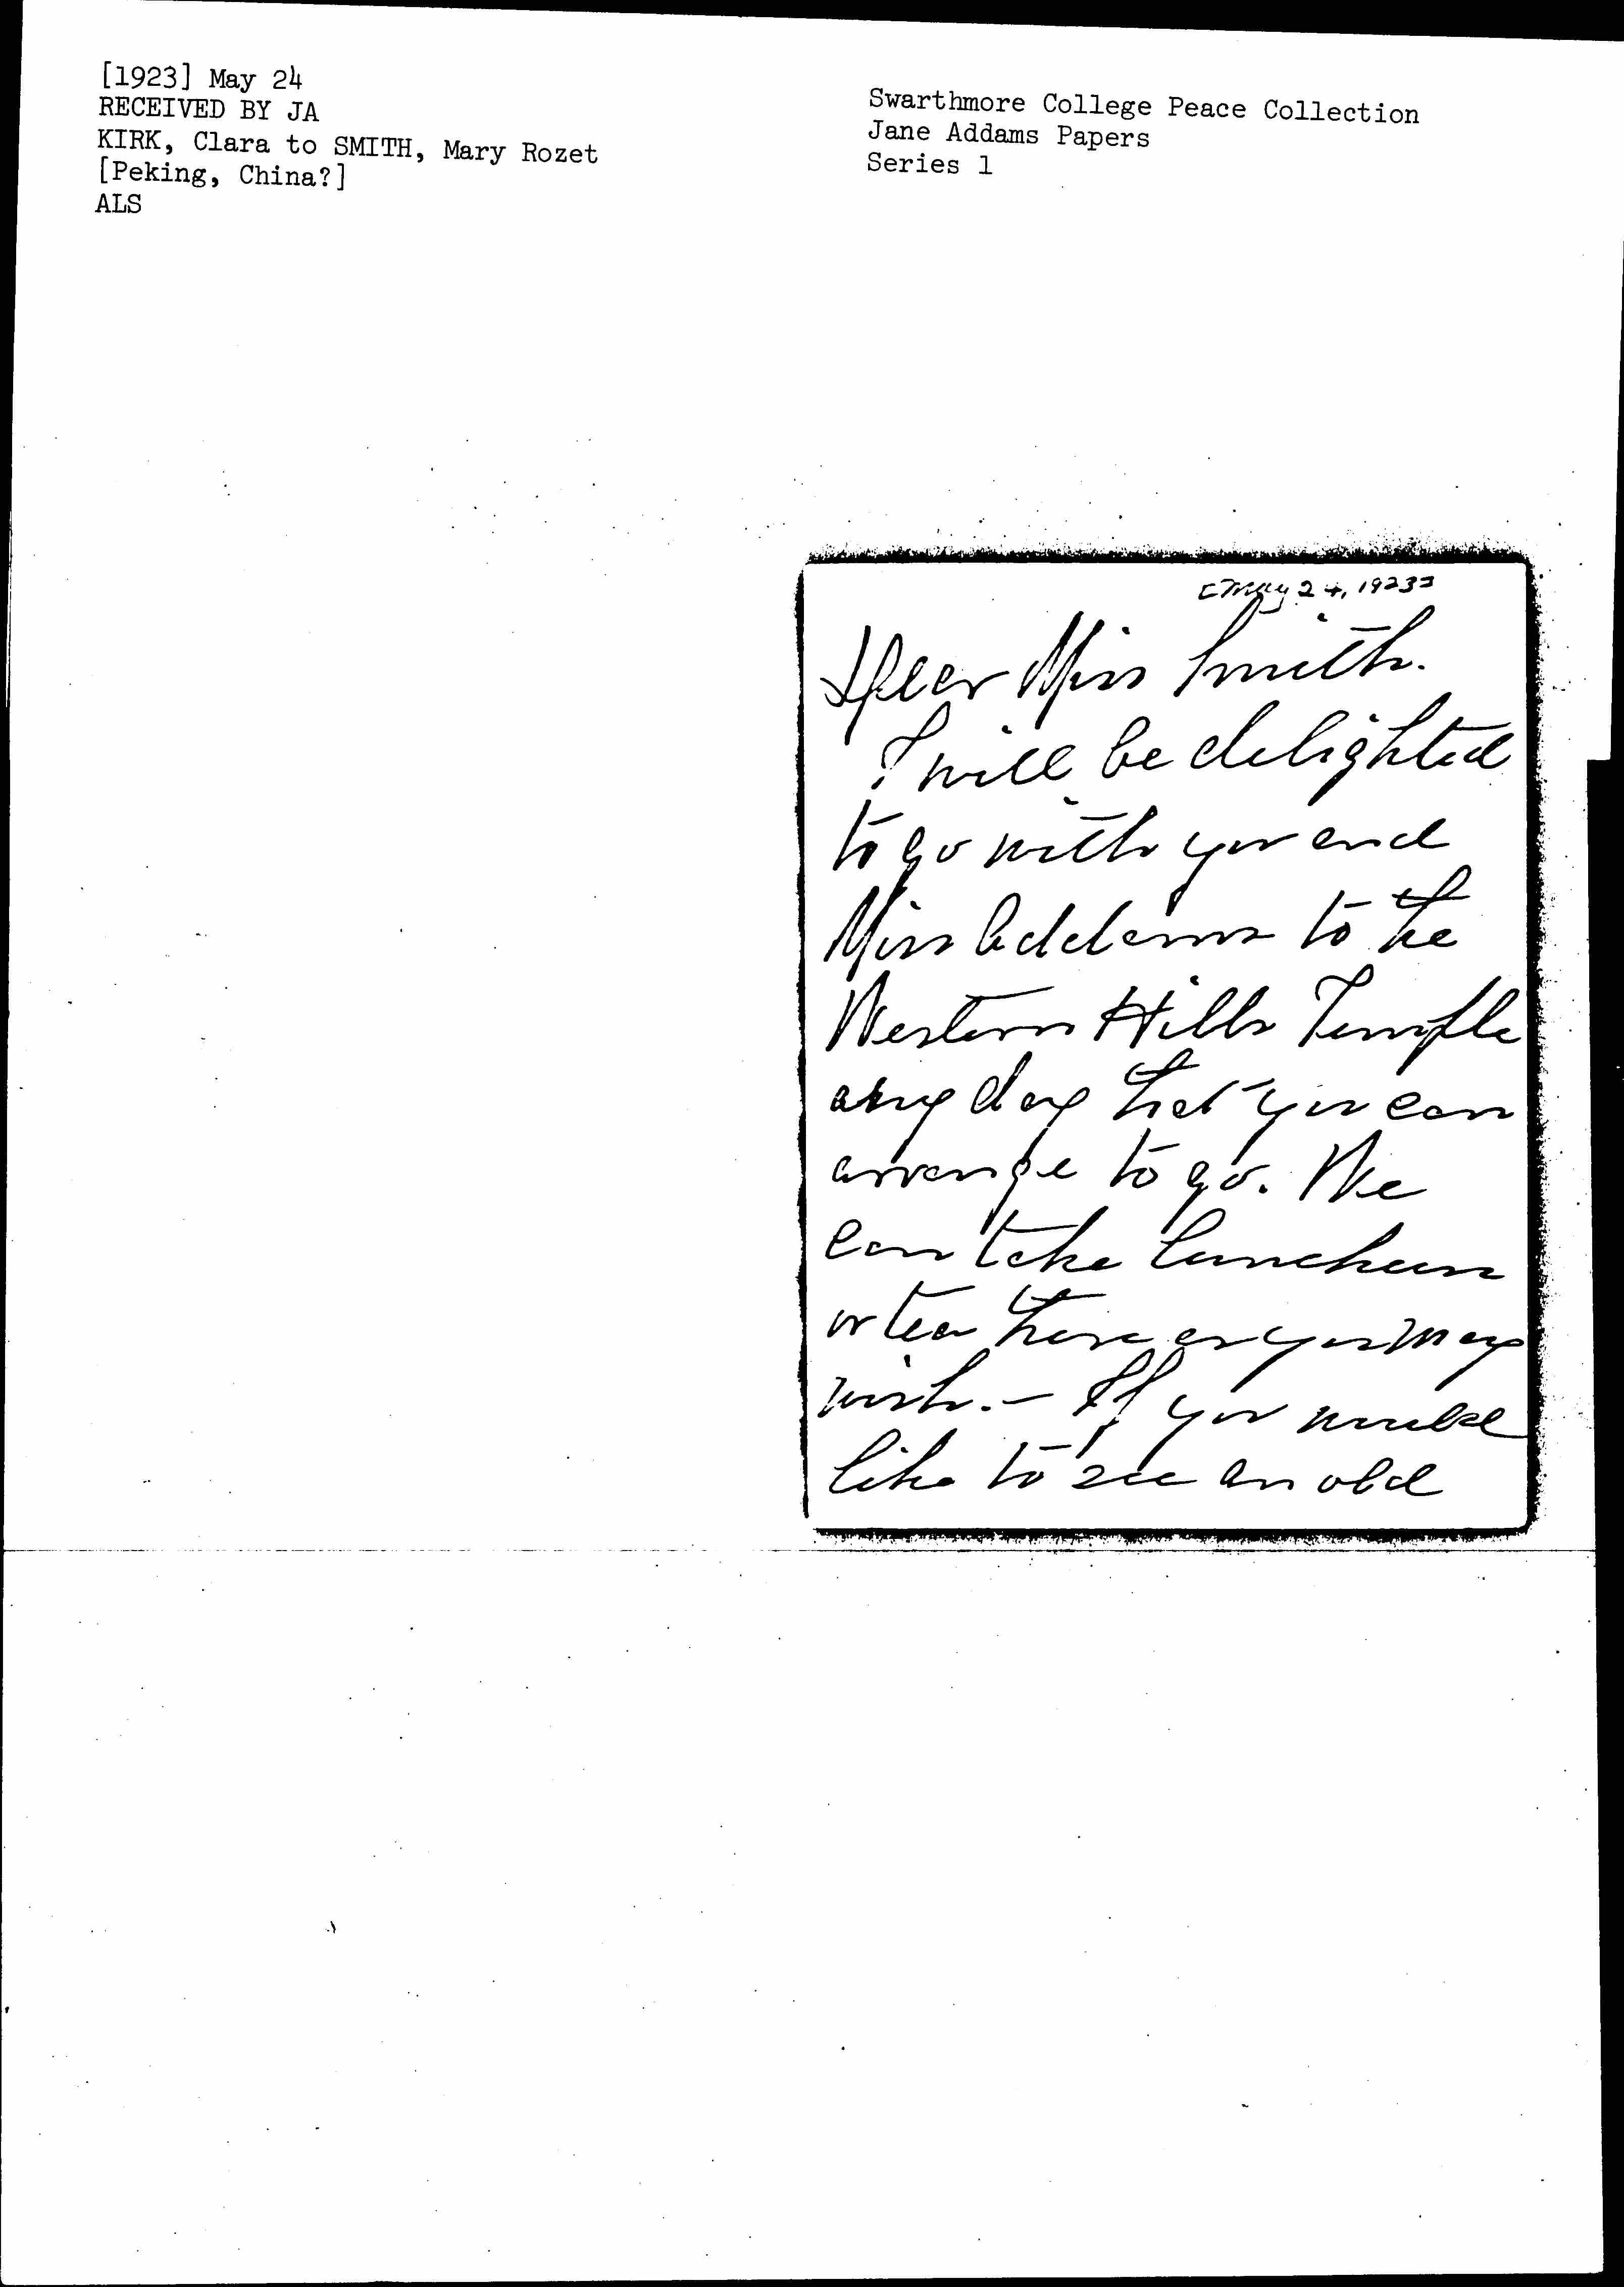 [1923] May 24
RECEIVED BY JA
KIRK, Clara to SMITH, Mary Rozet
[Peking, China?]
ALS
Swarthmore College Peace Collection
Jane Addams Papers
Series 1
[May 24, 1923]
Dear Miss Smith.
I will be delighted
to go with you and
Miss Addams to the
Western Hills Temple
any day that you can
arrange to go. We
can take luncheon
or tea there as you may
wish. - If you would
like to see an old